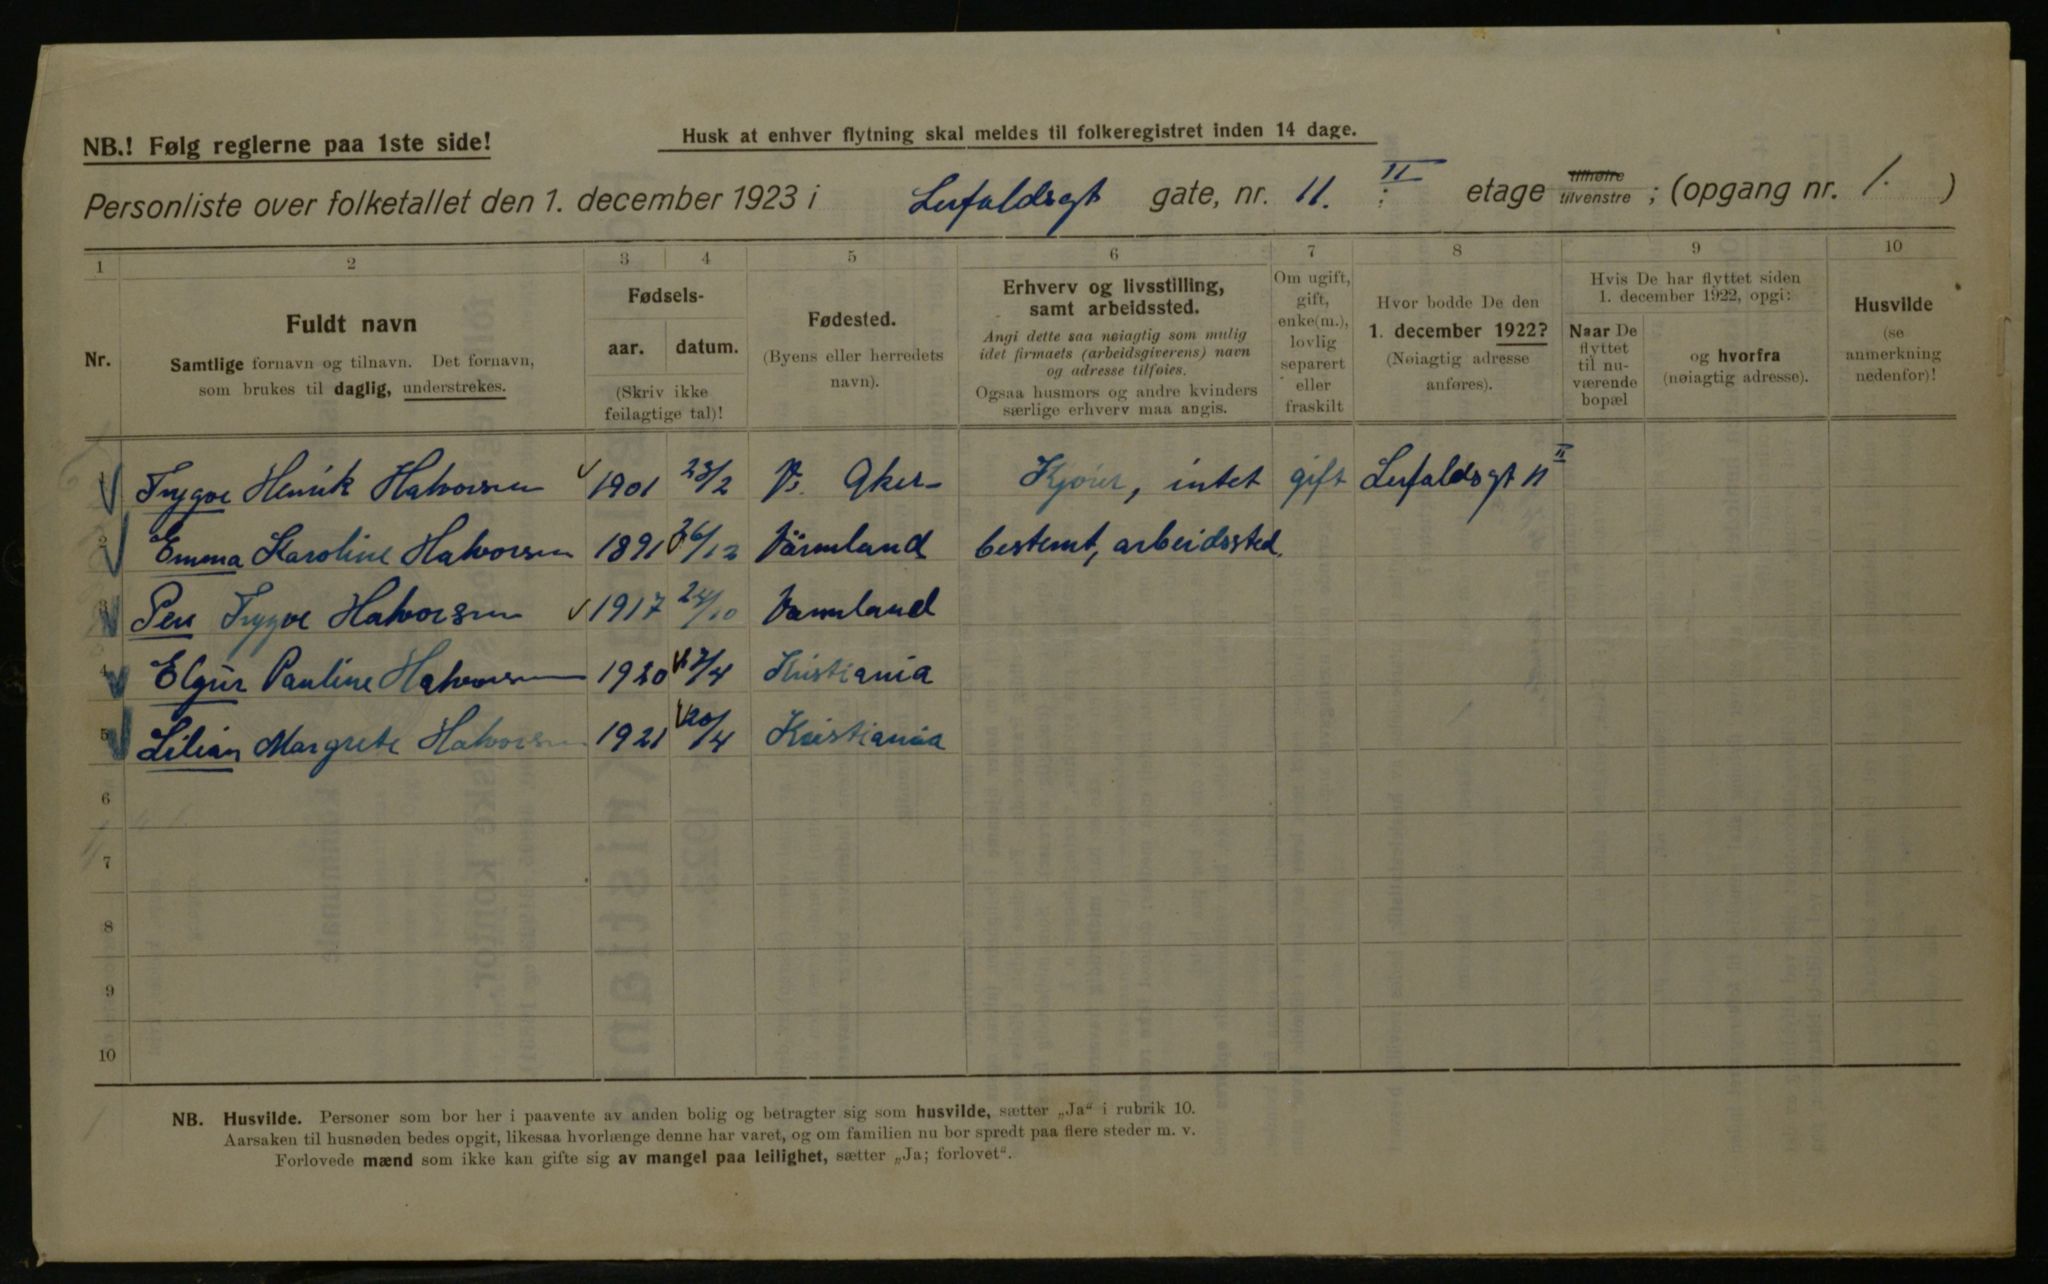 NB.! Følg reglerne paa 1ste side!
Husk at enhver flytning skal meldes til folkeregistret inden 14 dage.
Personliste over folketallet den 1. december 1923 i Lufaldsgt gate, nr. 11. : II etage tilhøire tilvenstre ; (opgang nr. 1. )
1 2 3 4 5 6 7 8 9 10
Nr.
Fuldt navn
Samtlige fornavn og tilnavn. Det fornavn,
som brukes til daglig, understrekes.
Fødsels-
aar. datum.
(Skriv ikke
feilagtige tal)!
Fødested.
(Byens eller herredets
navn).
Erhverv og livsstilling,
samt arbeidssted.
Angi dette saa nøiagtig som mulig
idet firmaets (arbeidsgiverens) navn
og adresse tilføies.
Ogsaa husmors og andre kvinders
særlige erhverv maa angis.
Om ugift,
gift,
enke(m.),
lovlig
separert
eller
fraskilt
Hvor bodde De den
1. december 1922?
(Nøiagtig adresse
anføres).
Hvis De har flyttet siden
1. december 1922, opgi:
Naar De
flyttet
til nu-
værende
bopæl
og hvorfra
(nøiagtig adresse).
Husvilde
(se
anmerkning
nedenfor)!
1 Trygve Henrik Halvorsen 1901 23/2 V. Aker Kjører, intet gift Lufaldsgt 11 II
2 Emma Karoline Halvorsen 1891 26/12 Värmland bestemt, arbeidssted.
3 Per Trygve Halvorsen 1917 24/10 Varmland
4 Pauline Halvorsen 1920 Kristiania
5 Lilian Margrete Halvorsen 1921 20/4 Kristiania
6
7
8
9
10
NB. Husvilde. Personer som bor her i paavente av anden bolig og betragter sig som husvilde, sætter „Ja“ i rubrik 10.
Aarsaken til husnøden bedes opgit, likesaa hvorlænge denne har varet, og om familien nu bor spredt paa flere steder m. v.
Forlovede mænd som ikke kan gifte sig av mangel paa leilighet, sætter „Ja; forlovet“.